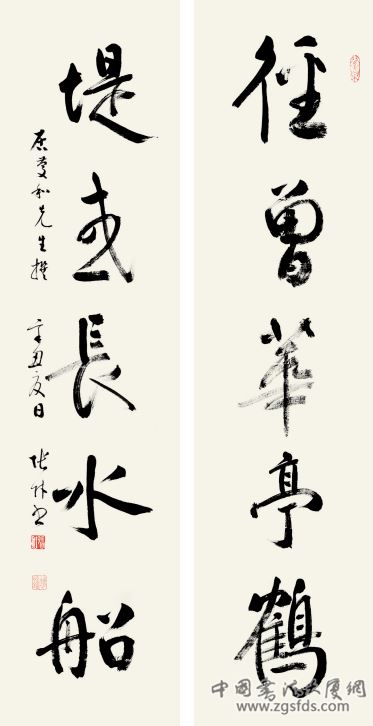 徑曾華亭鶴
堤或長水船
和先生撰 辛丑夏日
中國書法大廈網
www.zgsfds.com